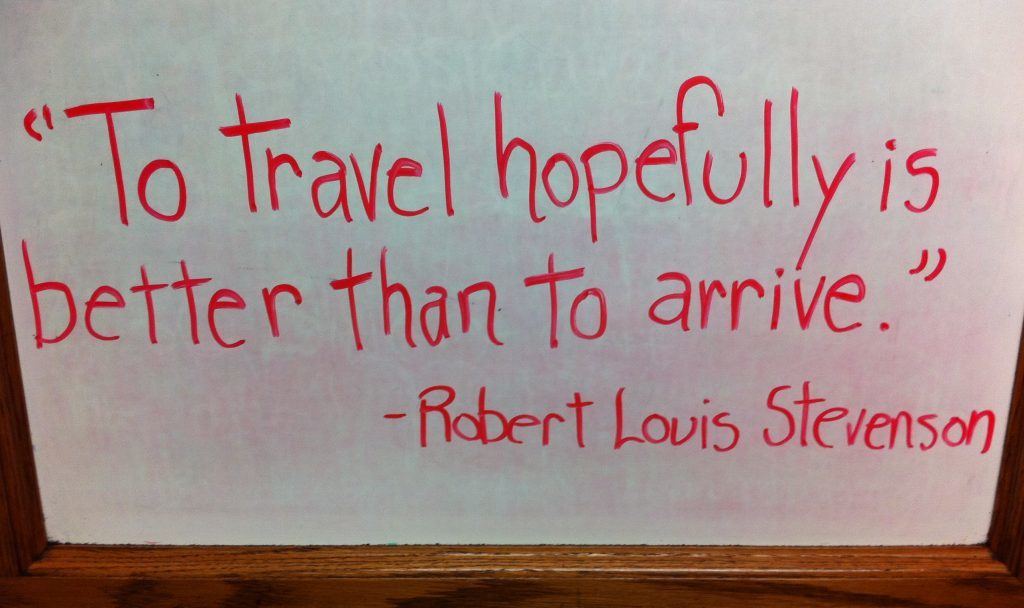 “To travel hopefully is
better than to arrive.”
-Robert Louis Stevenson